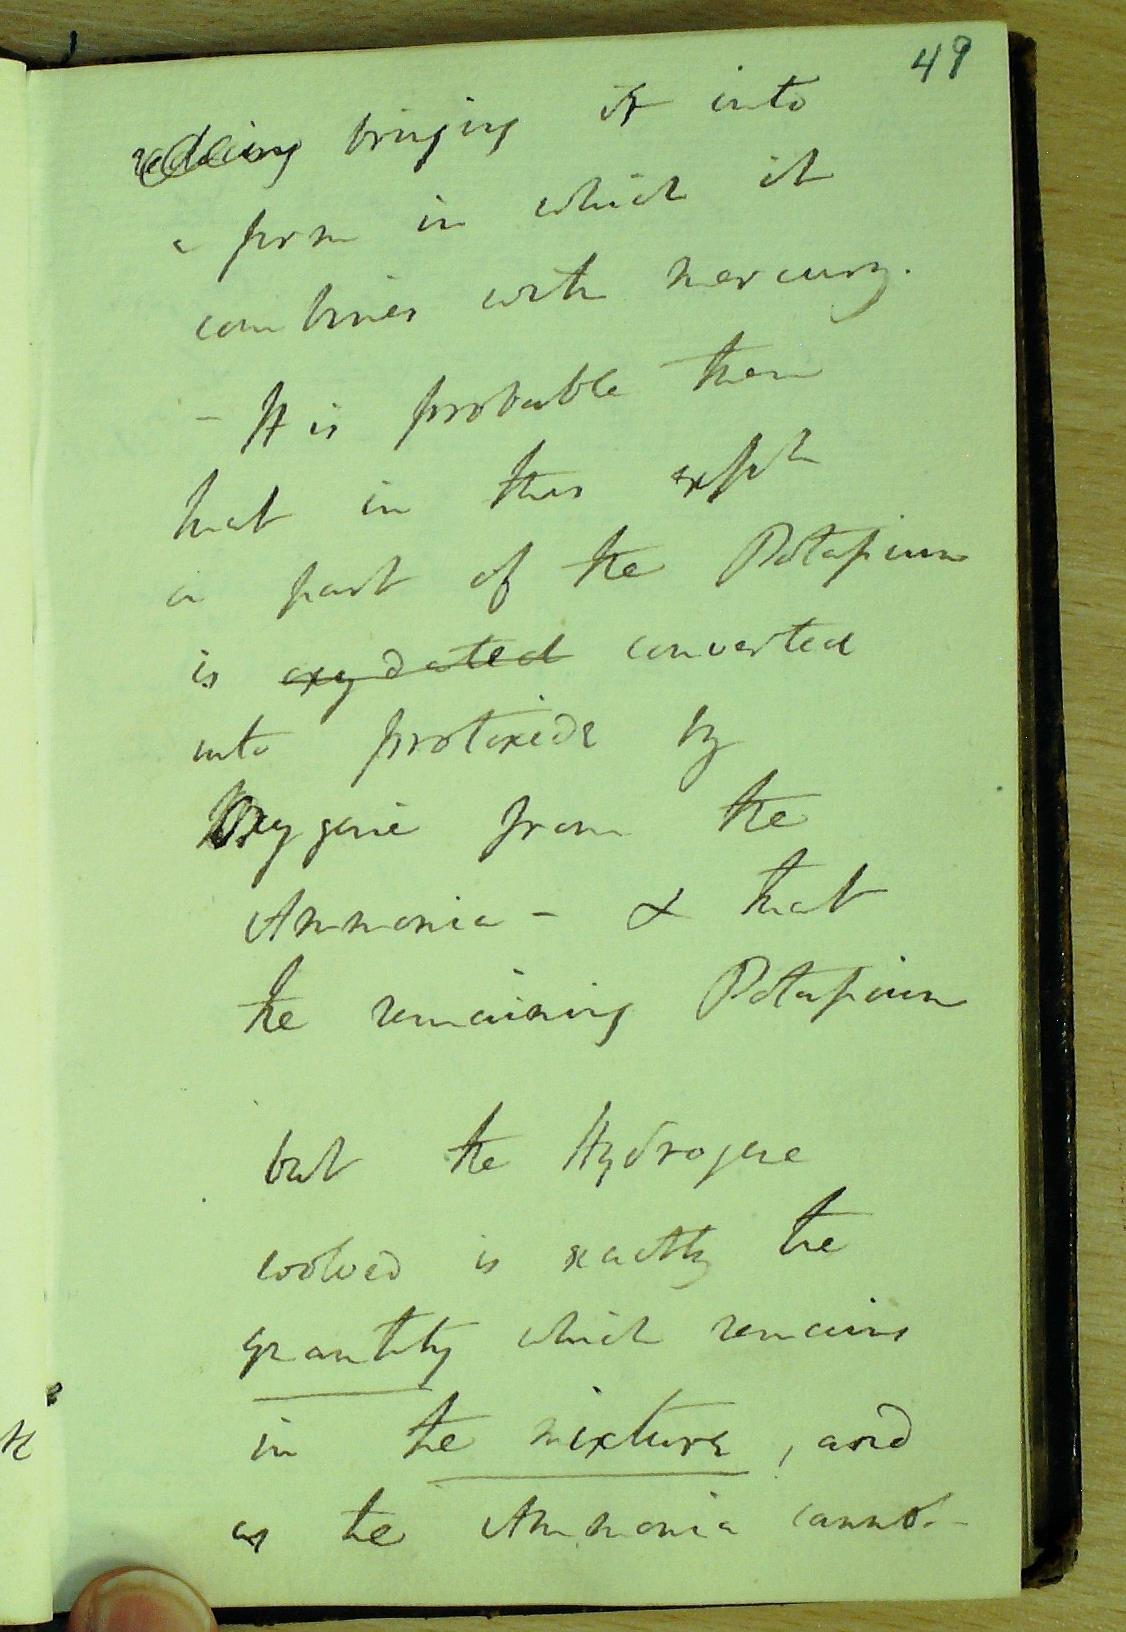 49
bringing it into
a form in which it
combines with mercury.
- It is probable then
that in this expt
a part of the Potassium
is oxydated converted
into protoxide by
Oxygene from the
Ammonia - & that
the remaining Potassium
but the Hydrogene
evolved is exactly the
quantity which remains
in the mixture, and
as the Ammonia cannot-